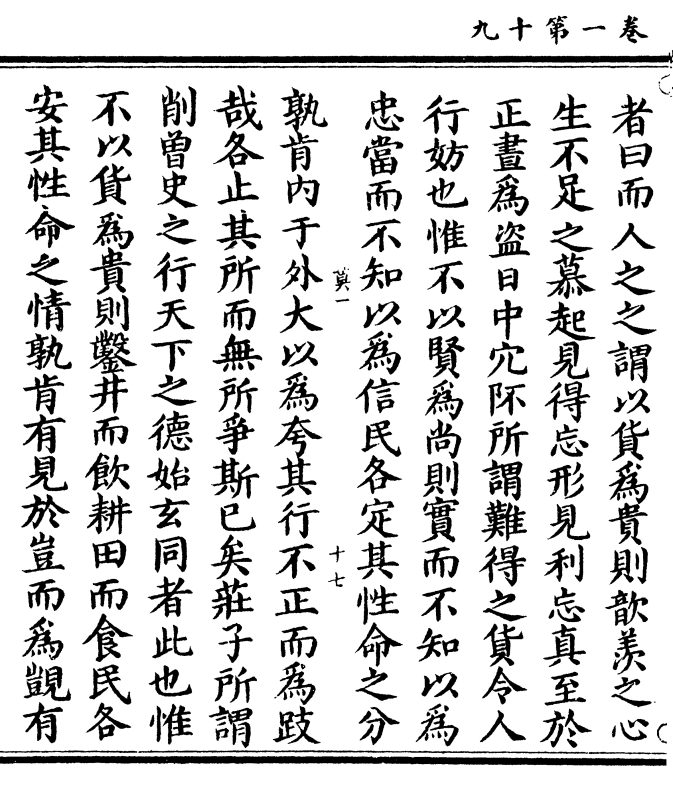 卷一第十九
者曰而人之之謂以貨為貴則歆羨之心
生不足之慕起見得忘形見利忘真至於
正晝為盜日中穴阫所謂難得之貨令人
行妨也惟不以賢為尚則實而不知以為
忠當而不知以為信民各定其性命之分
莫一 十七
孰肯内于外大以為夸其行不正而為跂
哉各止其所而無所爭斯已矣莊子所謂
削曾史之行天下之德始玄同者此也惟
不以貨為貴則鑿井而飲耕田而食民各
安其性命之情孰肯有見於豈而為覬有